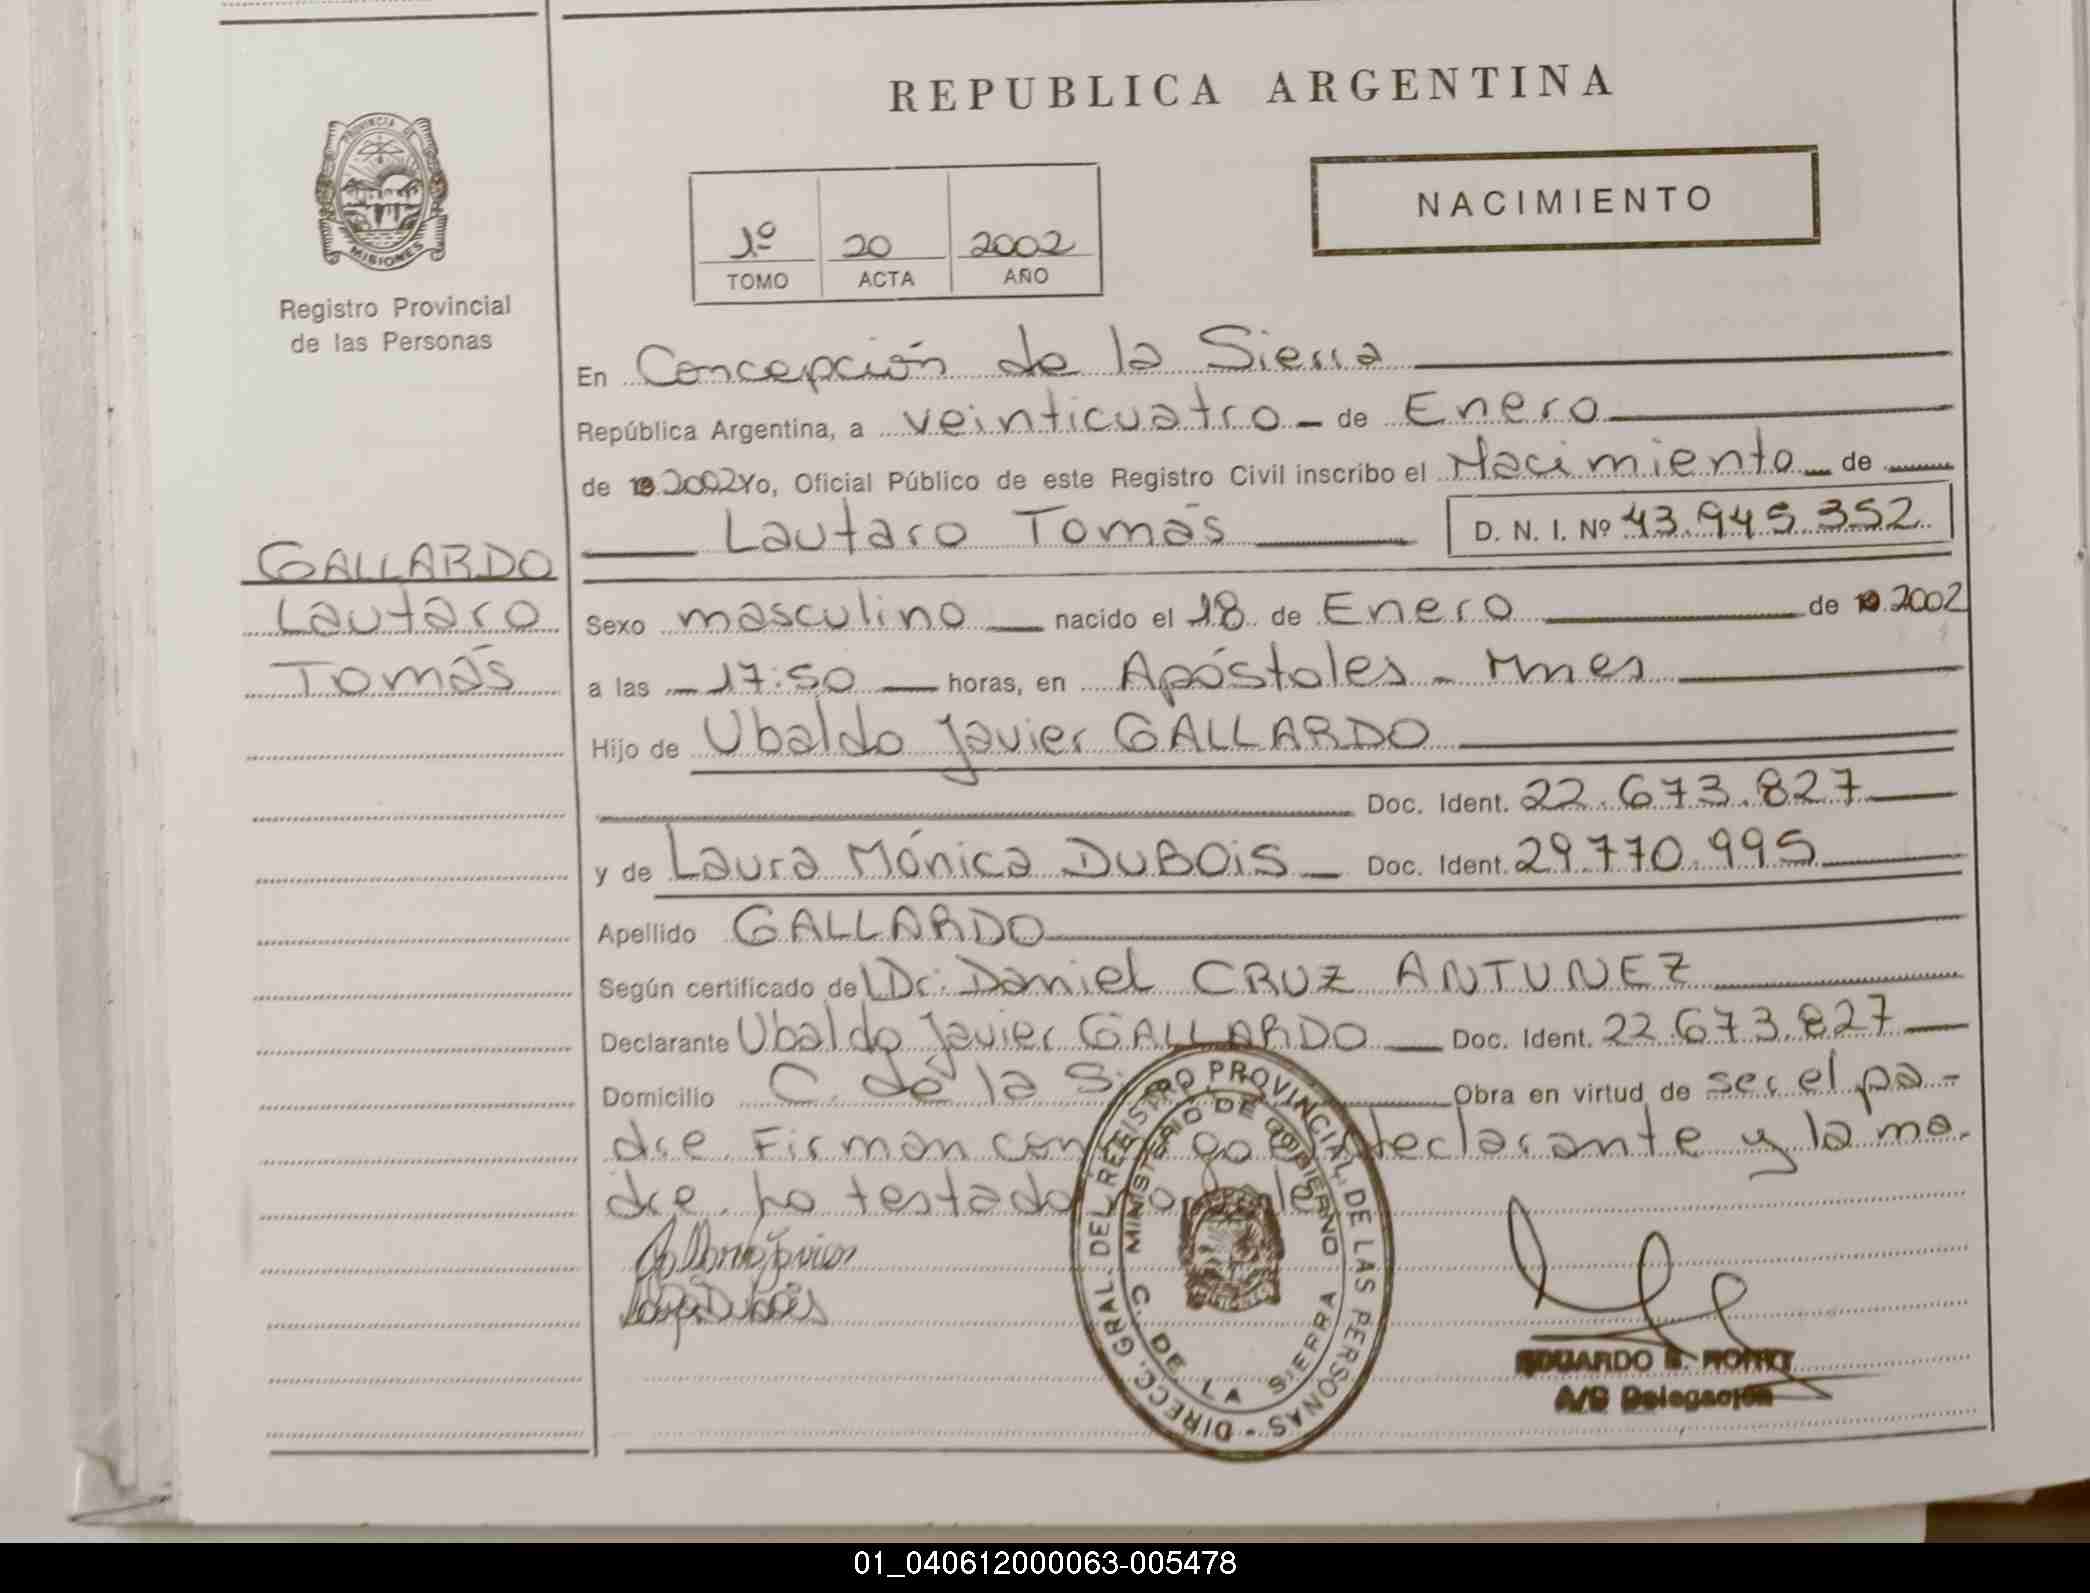 REPUBLICA ARGENTINA
NACIMIENTO
PROVINCIA DE
MISIONES
Registro Provincial
de las Personas
1º 20 2002
TOMO ACTA AÑO
En Concepción de la Sierra
República Argentina, a veinticuatro - de Enero
de 2002 Yo, Oficial Público de este Registro Civil inscribo el Nacimiento de
Lautaro Tomás D. N. I. Nº 43.945.352
GALLARDO
Lautaro
Tomás
Sexo masculino nacido el 18 de Enero de 2002
a las 17:50 horas, en Apóstoles - Mnes
Hijo de Ubaldo Javier GALLARDO
Doc. Ident. 22.673.827
y de Laura Mónica DUBOIS Doc. Ident. 29.770.995
Apellido GALLARDO
Según certificado del Dr. Daniel CRUZ ANTUNEZ
Declarante Ubaldo Javier GALLARDO Doc. Ident. 22.673.827
Domicilio C. de la S. Obra en virtud de ser el pa-
dre. Firman declarante y la ma-
dre. ho testado
DIRECC. GRAL. DEL REGISTRO PROVINCIAL DE LAS PERSONAS -
MINISTERIO DE GOBIERNO
C. DE LA SIERRA
EDUARDO
A/C Delegación
01_040612000063-005478